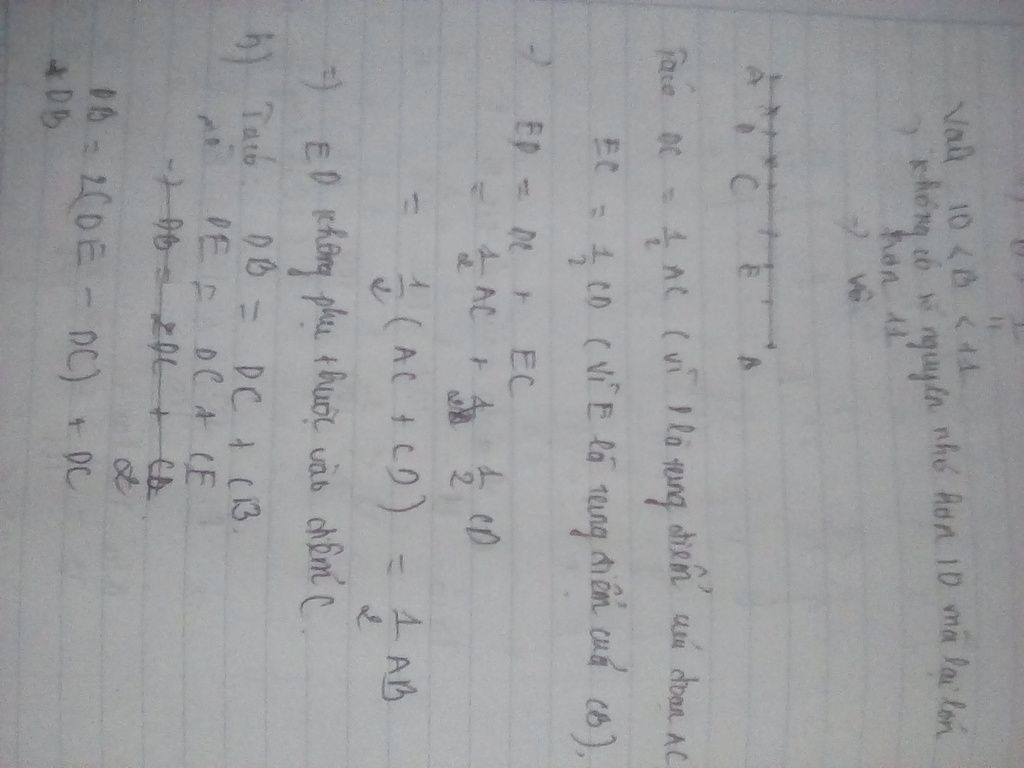 Vậy 10 < B < 11
→ không có số nguyên nhỏ hơn 10 mà lại lớn
hơn 11
→ Vô
A D C E A
Ta có DC = 1/2 AC ( vì D là trung điểm của đoạn AC
EC = 1/2 CD ( vì E là trung điểm của CB ),
→ ED = DC + EC
= 1/2 AC + 1/2 CD
= 1/2 ( AC + CD ) = 1/2 AB
=) ED không phụ thuộc vào điểm C
b) Ta có DB = DC + CB
DE = DC + CE
DB = 2(DE - DC) + DC
+ DB